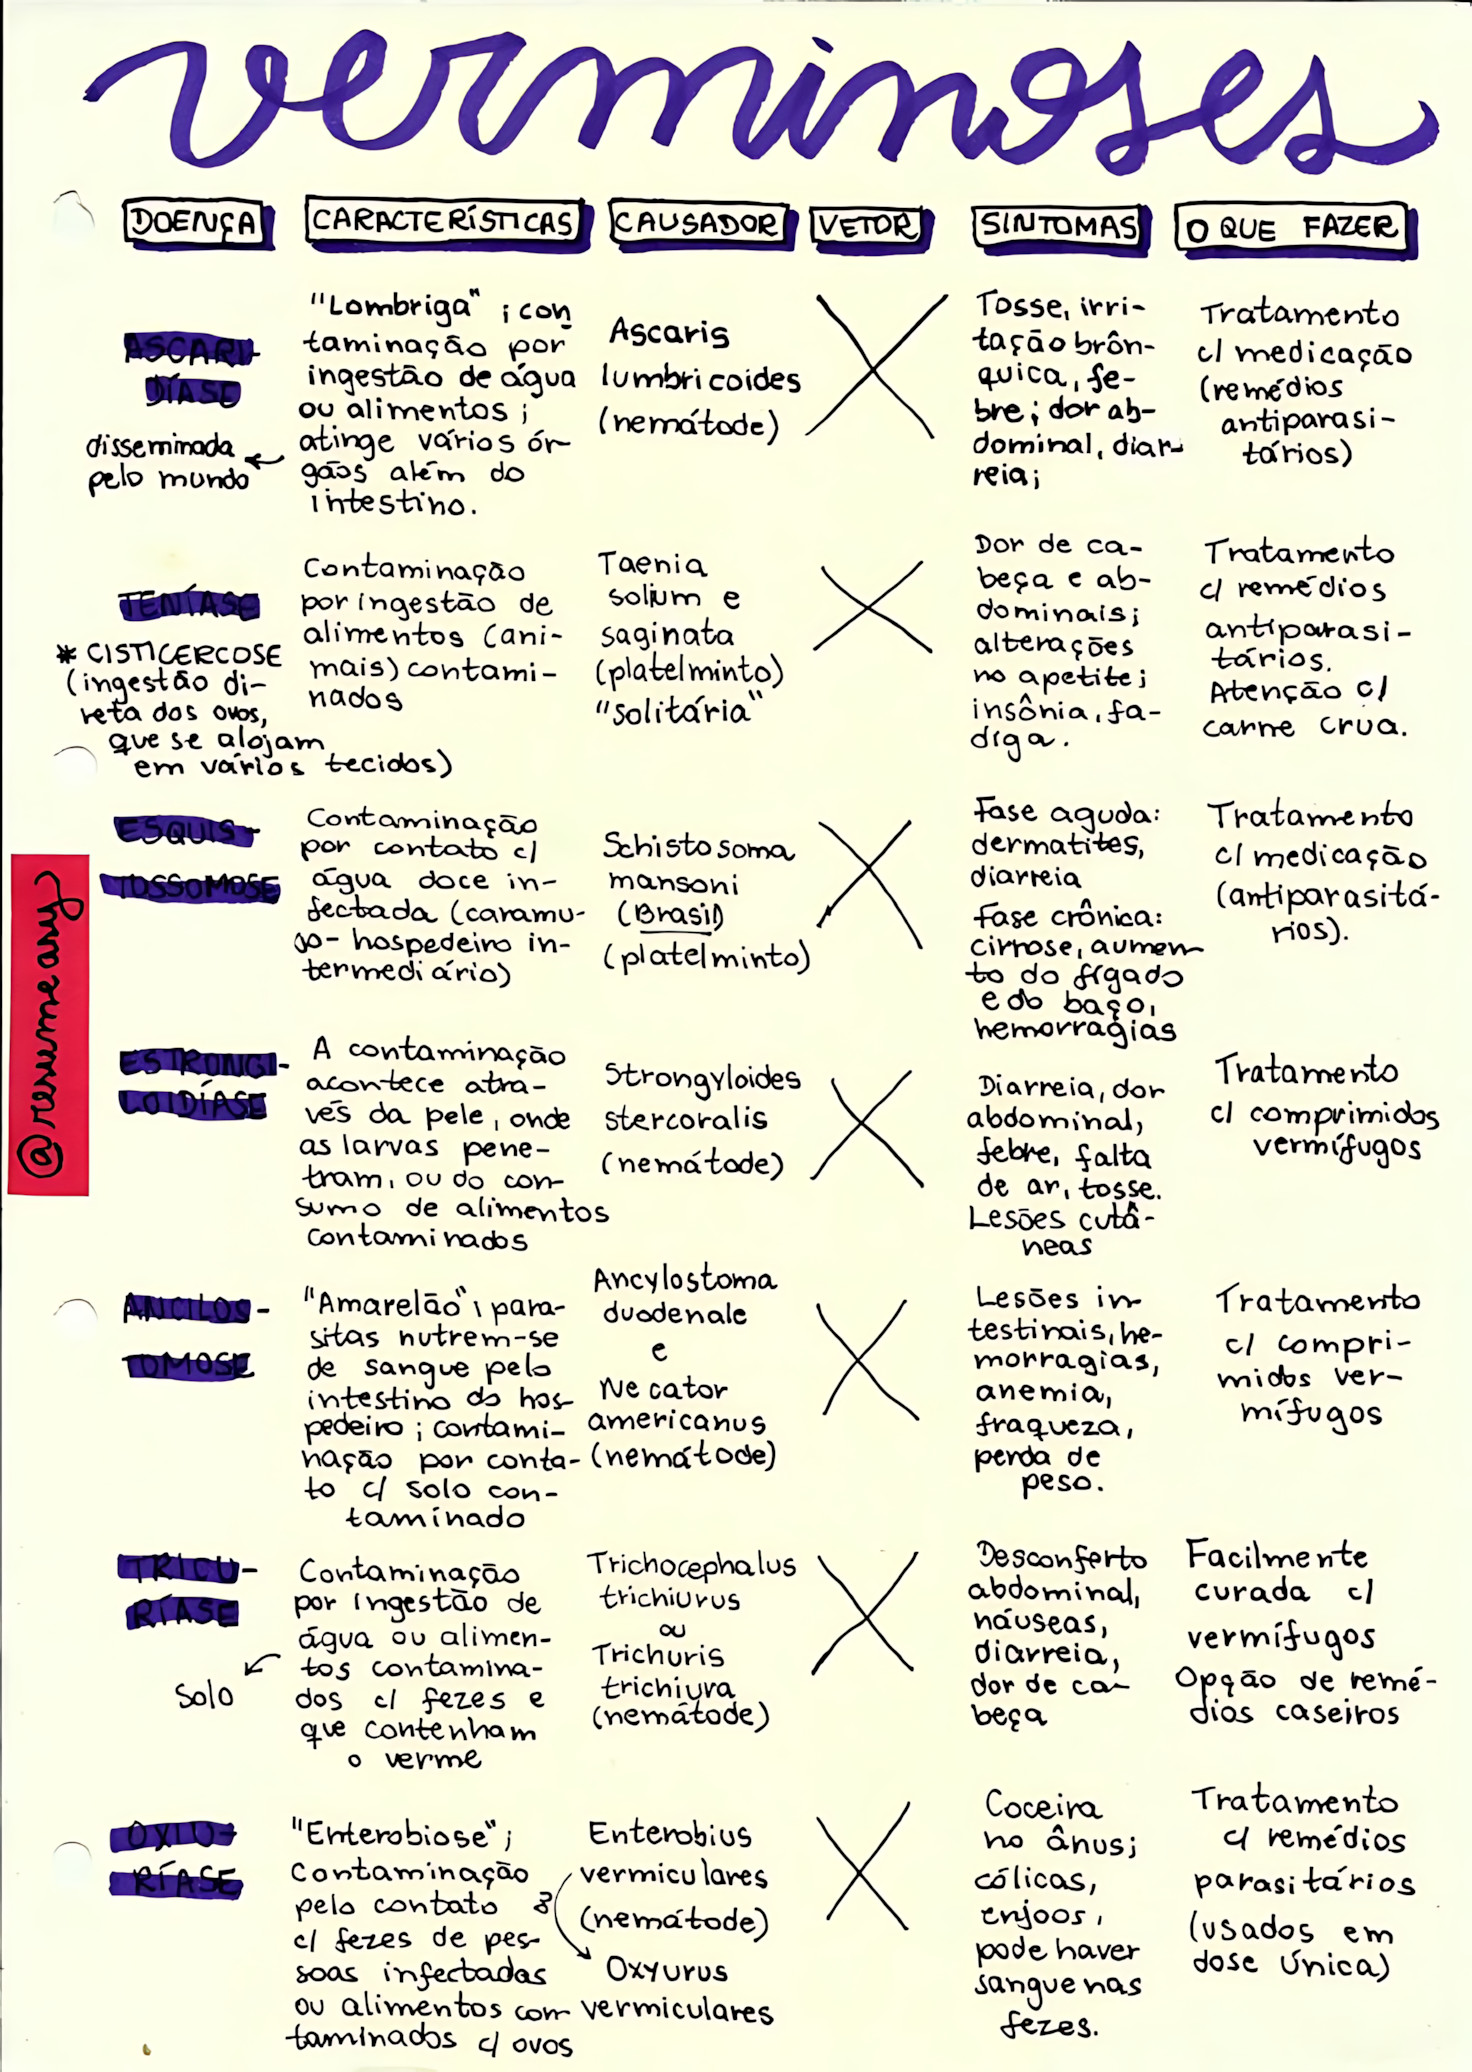 verminoses
DOENÇA
CARACTERÍSTICAS
CAUSADOR
VETOR
SINTOMAS
O QUE FAZER
ASCARI-
DÍASE
disseminada
pelo mundo
"Lombriga" ; con
taminação por
ingestão de água
ou alimentos ;
atinge vários ór-
gãos além do
intestino.
Ascaris
lumbricoides
(nemátode)
Tosse, irri-
tação brôn-
quica, fe-
bre; dor ab-
dominal, diar-
reia;
Tratamento
c/ medicação
(remédios
antiparasi-
tários)
TENÍASE
* CISTICERCOSE
(ingestão di-
reta dos ovos,
que se alojam
em vários tecidos)
Contaminação
por ingestão de
alimentos (ani-
mais) contami-
nados
Taenia
solium e
saginata
(platelminto)
"solitária"
Dor de ca-
beça e ab-
dominais;
alterações
no apetite;
insônia, fa-
diga.
Tratamento
c/ remédios
antiparasi-
tários.
Atenção c/
carne crua.
ESQUIS-
TOSSOMOSE
Contaminação
por contato c/
água doce in-
fectada (caramu-
jo- hospedeiro in-
termediário)
Schistosoma
mansoni
(Brasil)
(platelminto)
Fase aguda:
dermatites,
diarreia
Fase crônica:
cirrose, aumen
to do fígado
e do baço,
hemorragias
Tratamento
c/ medicação
(antiparasitá-
rios).
@resumeasy
ESTRONGI-
LOIDÍASE
A contaminação
acontece atra-
vés da pele, onde
as larvas pene-
tram, ou do con-
sumo de alimentos
contaminados
Strongyloides
stercoralis
(nemátode)
Diarreia, dor
abdominal,
febre, falta
de ar, tosse.
Lesões cutâ-
neas
Tratamento
c/ comprimidos
vermífugos
ANCILOS-
TOMOSE
"Amarelão"; para-
sitas nutrem-se
de sangue pelo
intestino do hos-
pedeiro ; contami-
nação por conta-
to c/ solo con-
taminado
Ancylostoma
duodenale
e
Necator
americanus
(nemátode)
Lesões in-
testinais, he-
morragias,
anemia,
fraqueza,
perda de
peso.
Tratamento
c/ compri-
midos ver-
mífugos
TRICU-
RÍASE
solo
Contaminação
por ingestão de
água ou alimen-
tos contamina-
dos c/ fezes e
que contenham
o verme
Trichocephalus
trichiurus
ou
Trichuris
trichiura
(nemátode)
Desconforto
abdominal,
náuseas,
diarreia,
dor de ca-
beça
Facilmente
curada c/
vermífugos
Opção de remé-
dios caseiros
OXIU-
RÍASE
"Enterobiose";
Contaminação
pelo contato
c/ fezes de pes-
soas infectadas
ou alimentos con-
taminados c/ ovos
Enterobius
vermiculares
(nemátode)
Oxyurus
vermiculares
Coceira
no ânus;
cólicas,
enjoos,
pode haver
sangue nas
fezes.
Tratamento
c/ remédios
parasitários
(usados em
dose única)